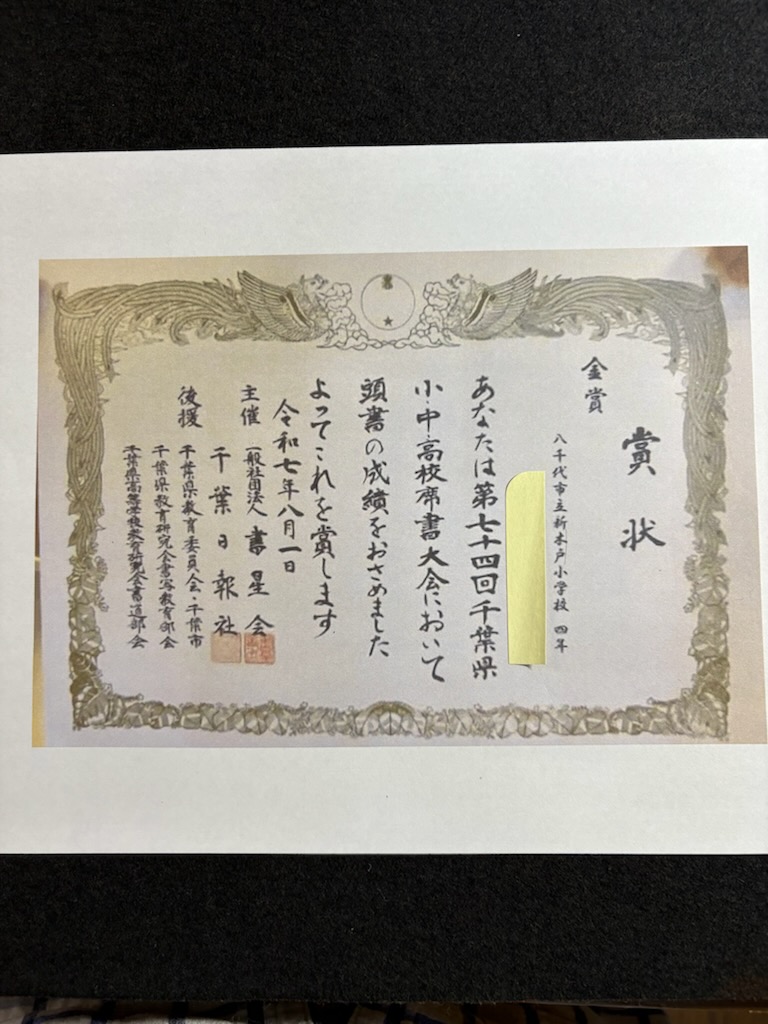 賞状
金賞
八千代市立新木戸小学校 四年
あなたは第七十四回千葉県
小・中高校席書大会において
頭書の成績をおさめました
よってこれを賞します
令和七年八月一日
主催 一般社団法人 書星会
千葉日報社
後援 千葉県教育委員会・千葉市
千葉県教育研究会書写教育部会
千葉県高等学校教育研究会書道部会